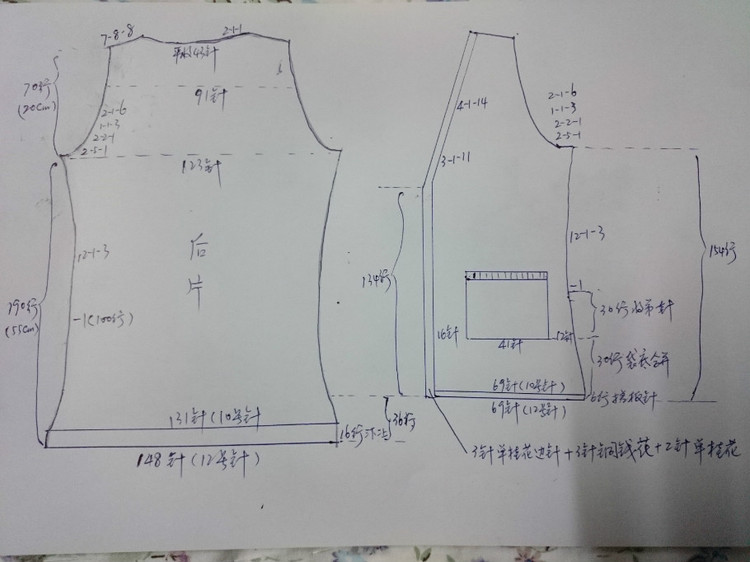 7-8-8
2-1-1
平收43针
70行
(20cm)
91针
2-1-6
1-1-3
2-2-1
2-5-1
123针
后
片
12-1-3
-1(100行)
190行
(55cm)
131针(10号针)
148针(12号针)
16行
36行
4-1-14
3-1-11
2-1-6
1-1-3
2-2-1
2-5-1
134行
12-1-3
154行
-1
16针
41针
12针
30行
30行袋底合并
69针(10号针)
69针(12号针)
6行搓板针
3针单桂花边针+3针铜钱花+2针单桂花